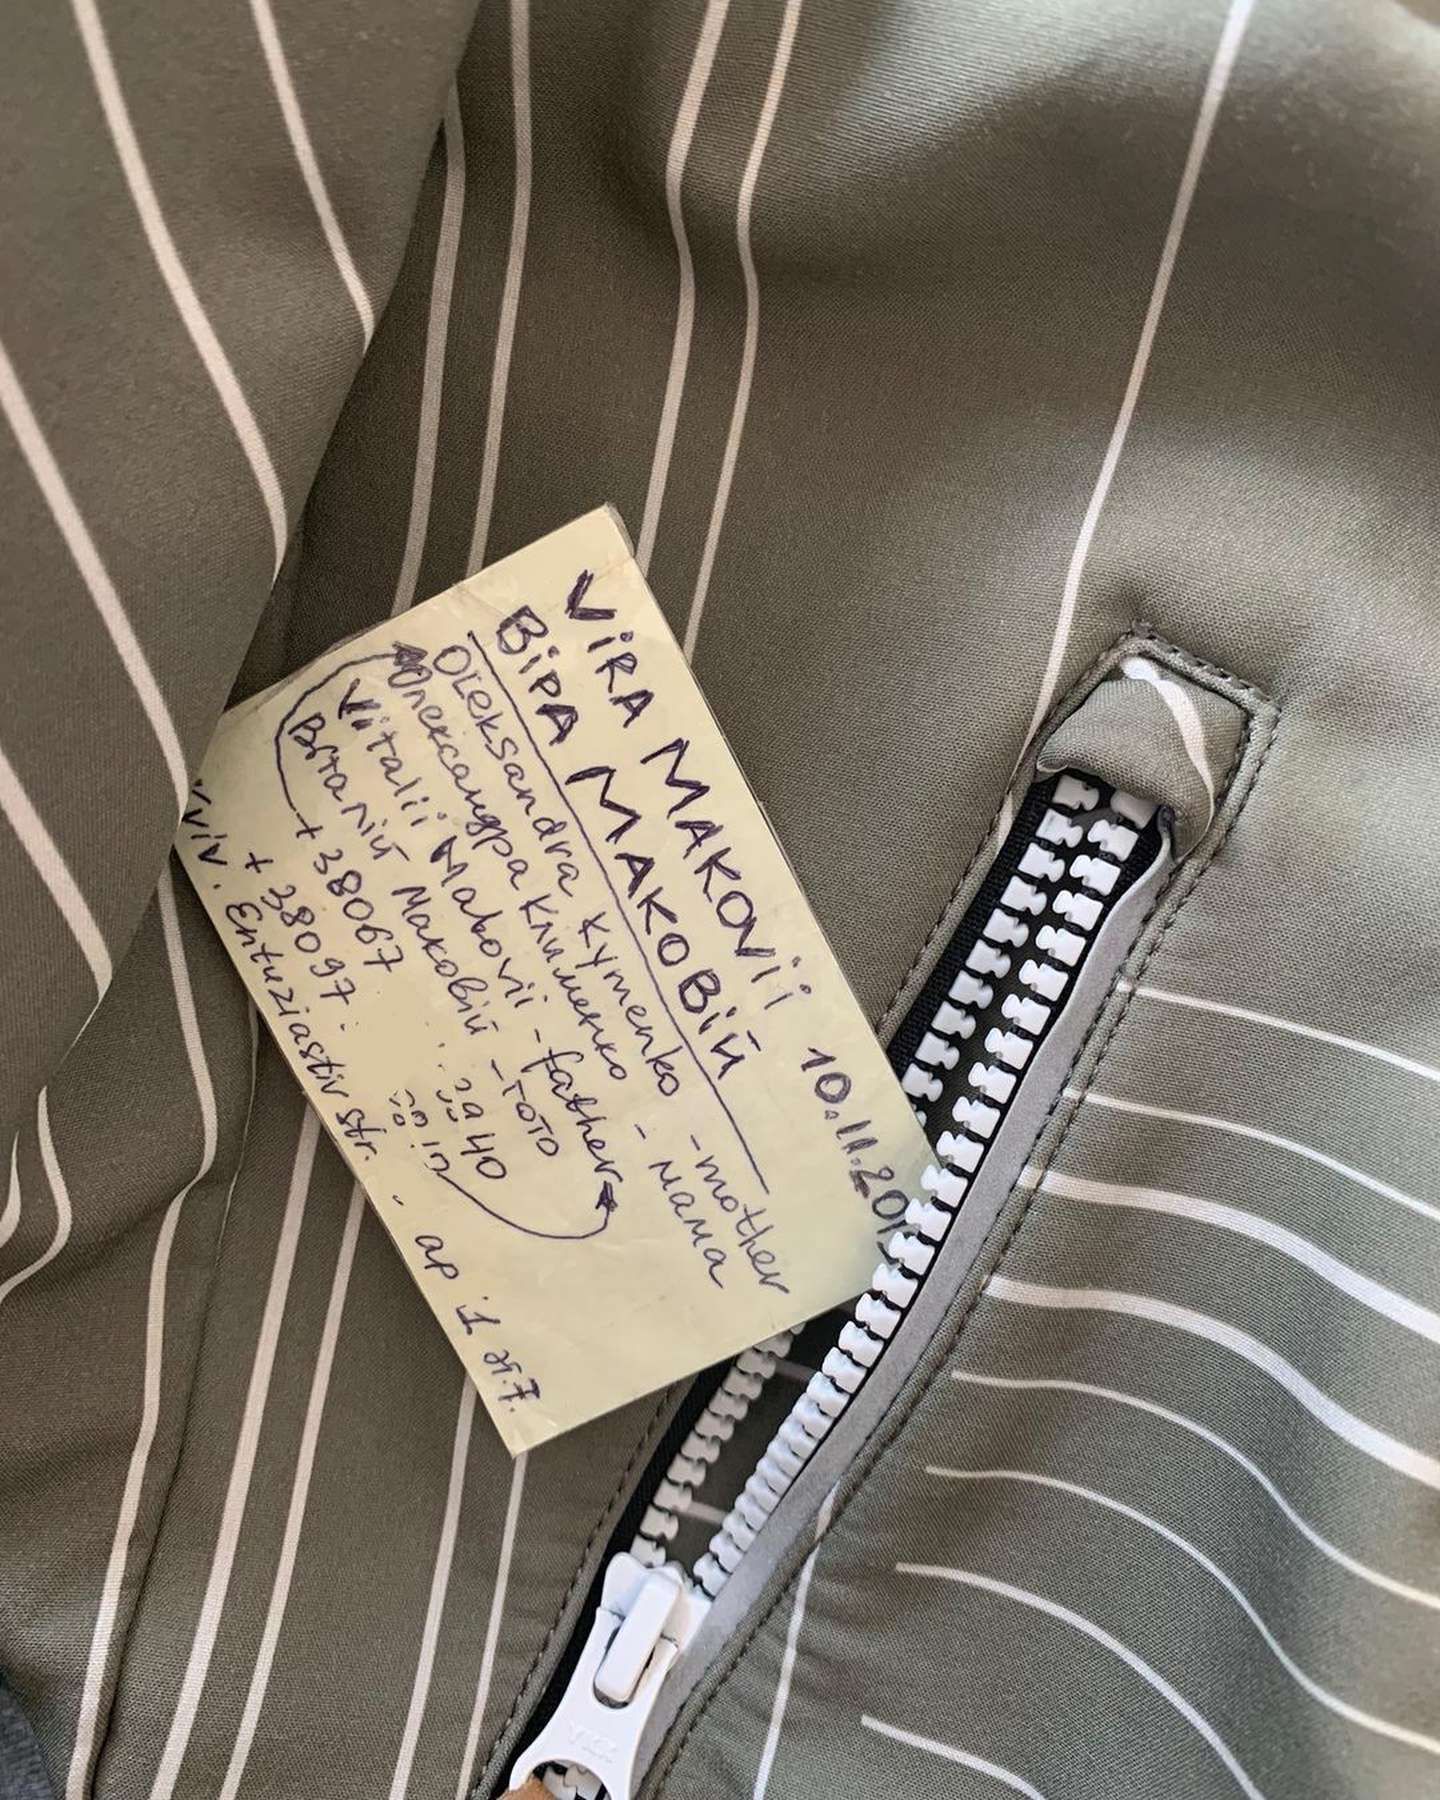 ViRA MAKOVii 10.11.201
ВіРА МАКОВіЙ
Oleksandra Kymenko - mother
Олександра Клименко - мама
Vitalii Makovii - father
Віталій Маковій - тато
+38067
+38097
yiv. Entuziastiv str. ap 1
YKK